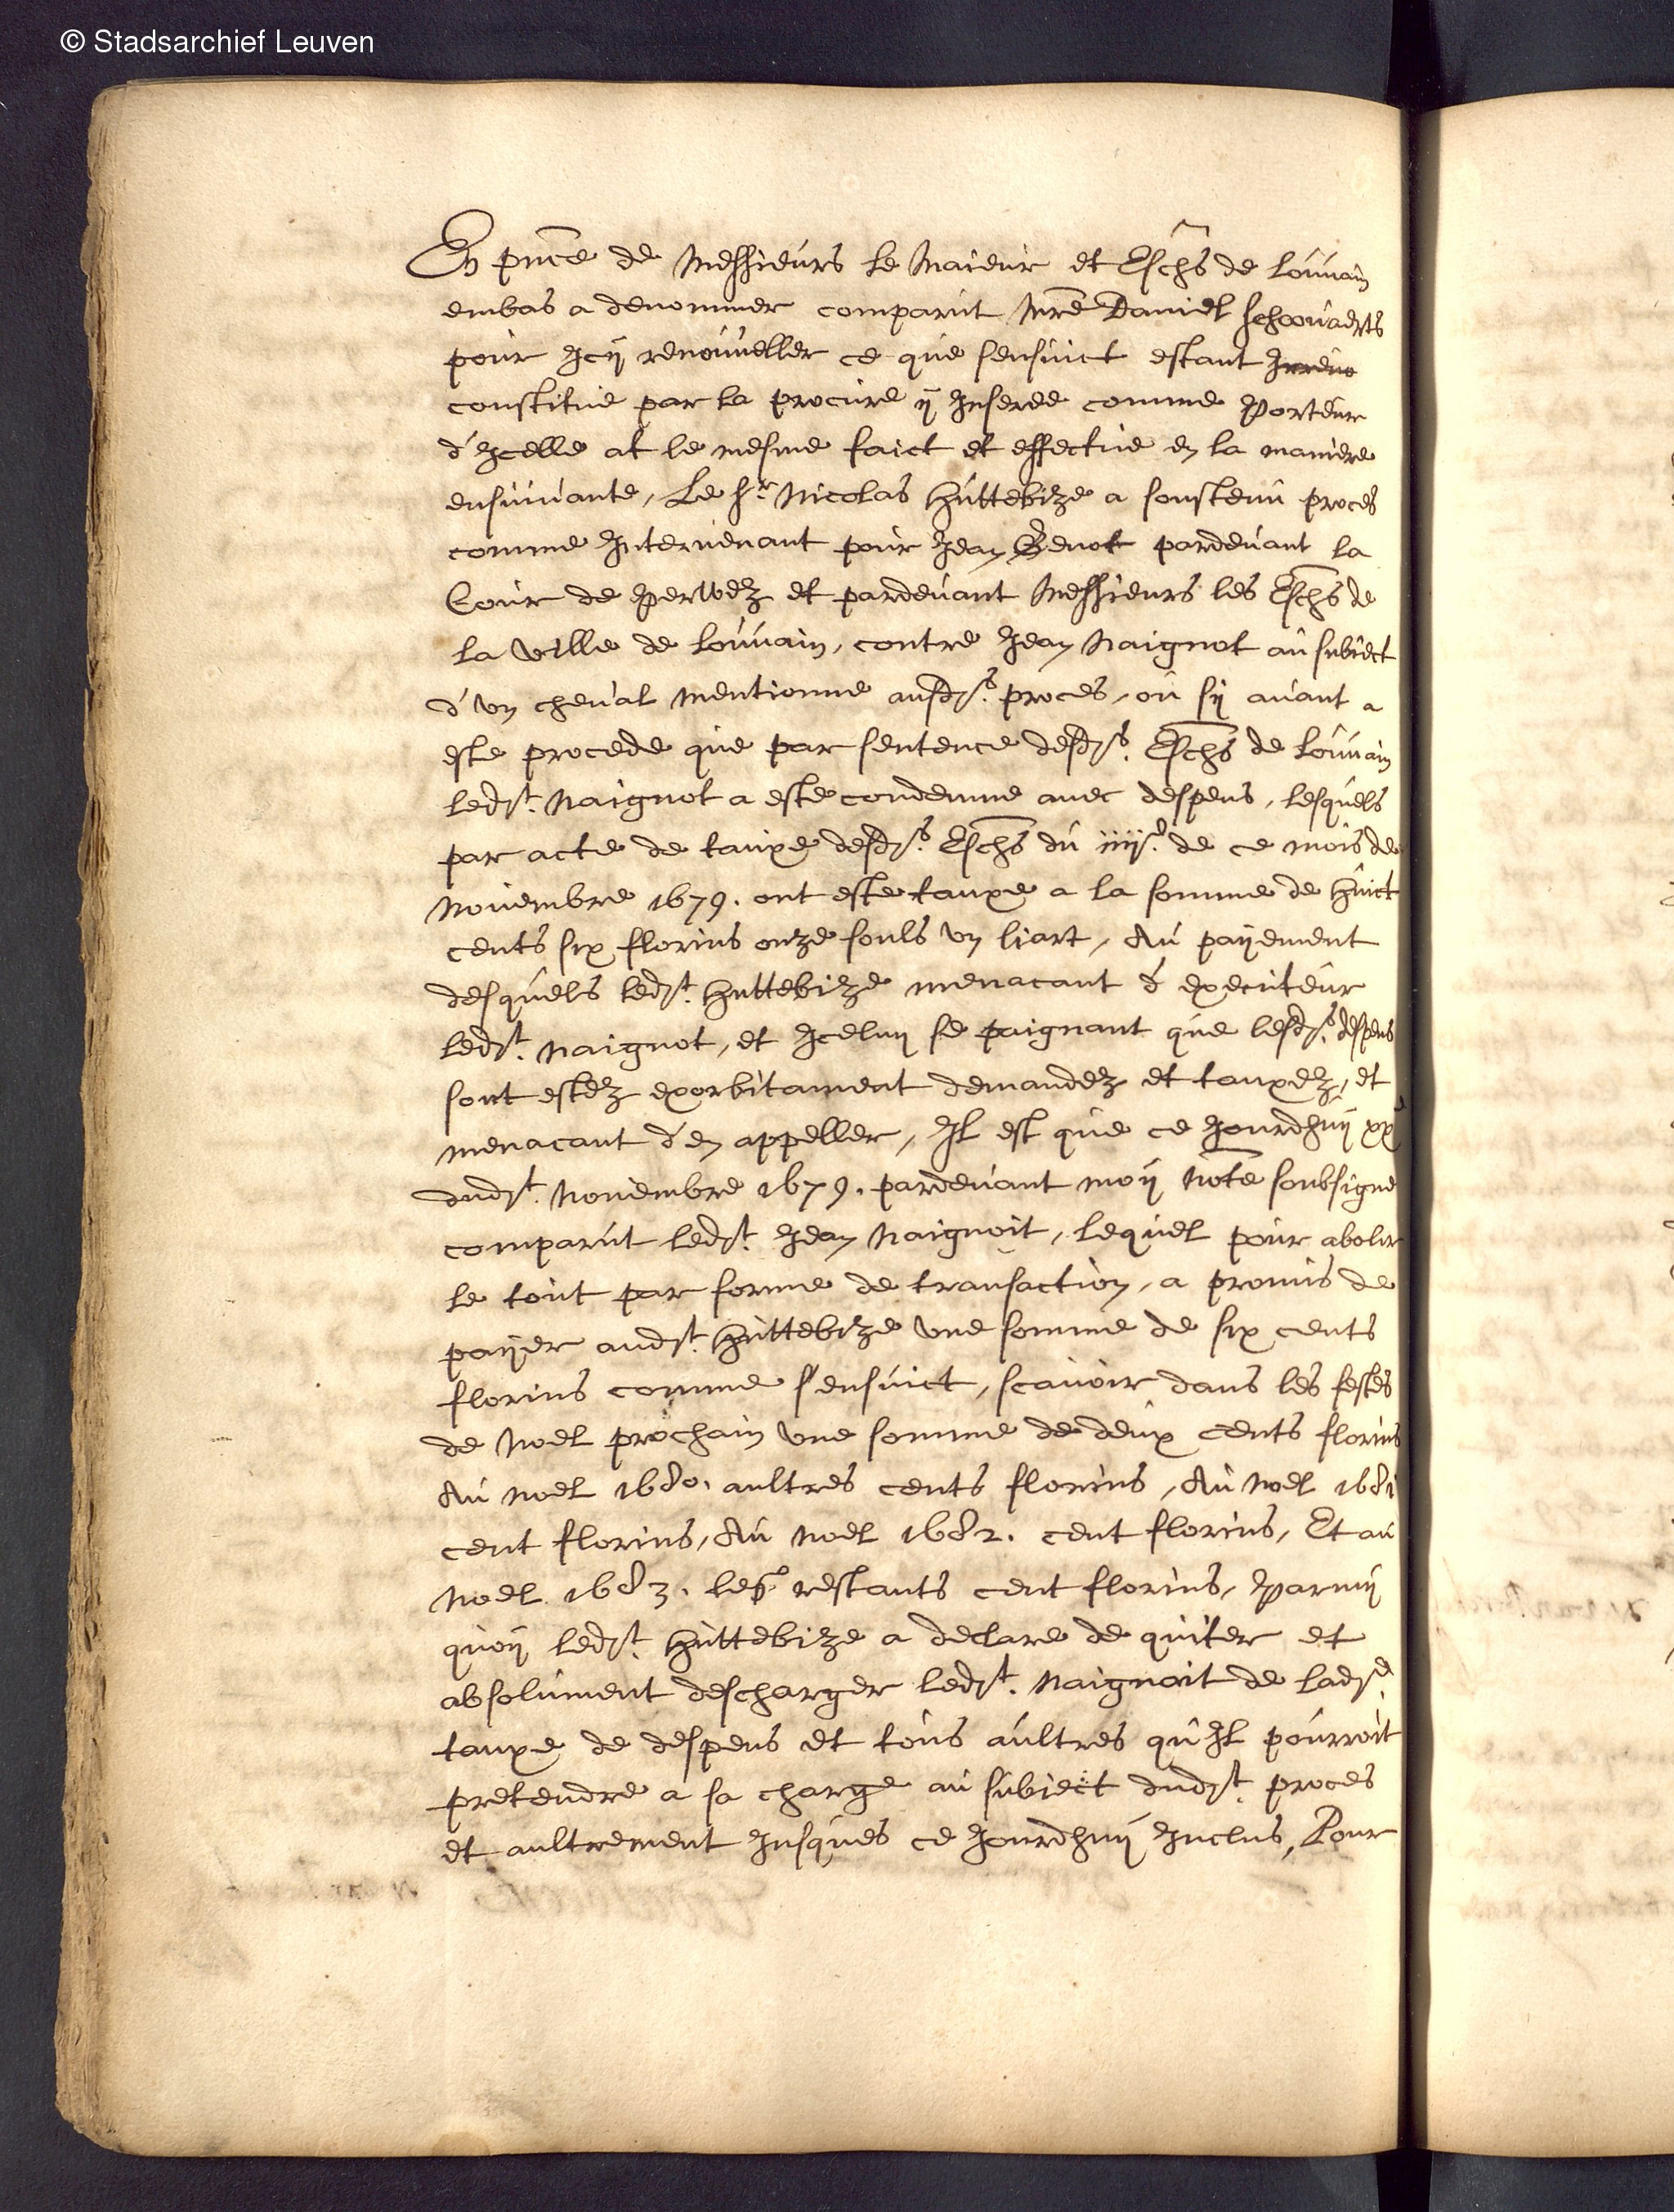 © Stadsarchief Leuven
En pnce de Messieurs le Maieur et Eschs de Louvain
embas a denommer comparut Mre Daniel Schooúaerts
pour Icÿ renoúveller ce que sensuict estant
constitué par la procure ÿ Inserée comme Porteur
d'Icelle at le mesme faict et effectué en la maniere
ensuiuante, Le Sr Nicolas Huttebize a soustenu proces
comme Interuenant pour Jean Benot pardeuant la
Cour de Perwez et pardeuant Messieurs les Eschs de
la ville de Louvain, contre Jean Naignot au subiect
d'un cheual mentionne ausdts. proces, ou sÿ auant a
este procede que par sentence desdts. Eschs de Louvain
ledt. Naignot a este condemne auec despens, lesquels
par acte de tauxe desdts. Eschs du iiije. de ce mois de
Nouembre 1679. ont este tauxe a la somme de huict
cents six florins onze souls un liart, Au paÿement
desquels ledt. Huttebize menacant d'executeur
ledt. Naignot, et Iceluÿ se paignant que lesdts. despens
sont estez exorbitament demandez et tauxez, et
menacant d'en appeller, Il est que ce Jourdhuÿ xxe
dudt. Nouembre 1679. pardeuant moÿ Note soubsigne
comparut ledt. Jean Naignoit, lequel pour abolir
le tout par forme de transaction, a promis de
paÿer audt. Huttebize une somme de six cents
florins comme s'ensuict, scauoir dans les festes
de Noel prochain une somme de deux cents florins
Au Noel 1680. aultres cents florins, Au Noel 1681
cent florins, Au Noel 1682. cent florins, Et au
Noel 1683. les restants cent florins, Parmÿ
quoÿ ledt. Huttebize a declare de quiter et
absolument descharger ledt. Naignoit de ladte.
tauxe de despens et tous aultres qu'Il pourroit
pretendre a sa charge au subiect dudt. proces
et aultrement Jusques ce Jourdhuÿ Inclus, Pour